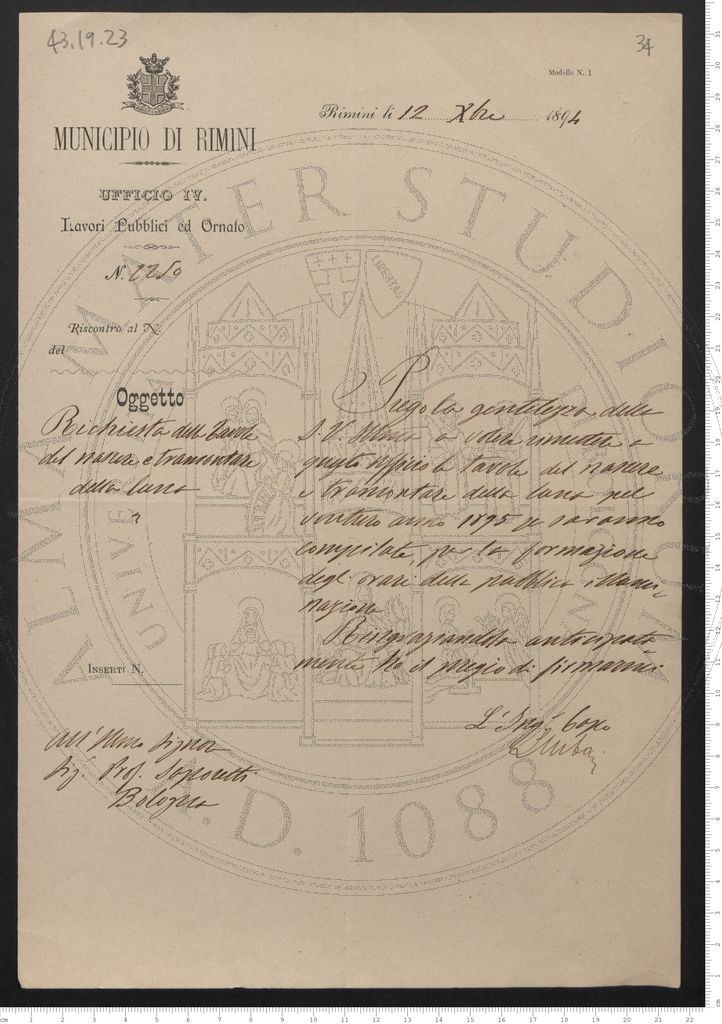 43.19.23
34
Modello N. 1
Rimini li 12 Xbre 1894
MUNICIPIO DI RIMINI
UFFICIO IV.
Lavori Pubblici ed Ornato
N.
Riscontro al N.
del
Oggetto
Richiesta delle Tavole
del nascere e tramontare
della luna
Prego la gentilezza della
S. V. Illma a voler rimettere a
questo ufficio le tavole del nascere
e tramontare della luna pel
venturo anno 1895 se saranno
compilate, per la formazione
degli orari della pubblica illumi-
nazione
Ringraziandola anticipata-
mente ho il pregio di firmarmi
INSERTI N.
L'Ingr Capo
All' Illmo Signor
Sigr Prof. Saporetti
Bologna
ALMA MATER STUDIORUM
A.D. 1088
LIBERTAS